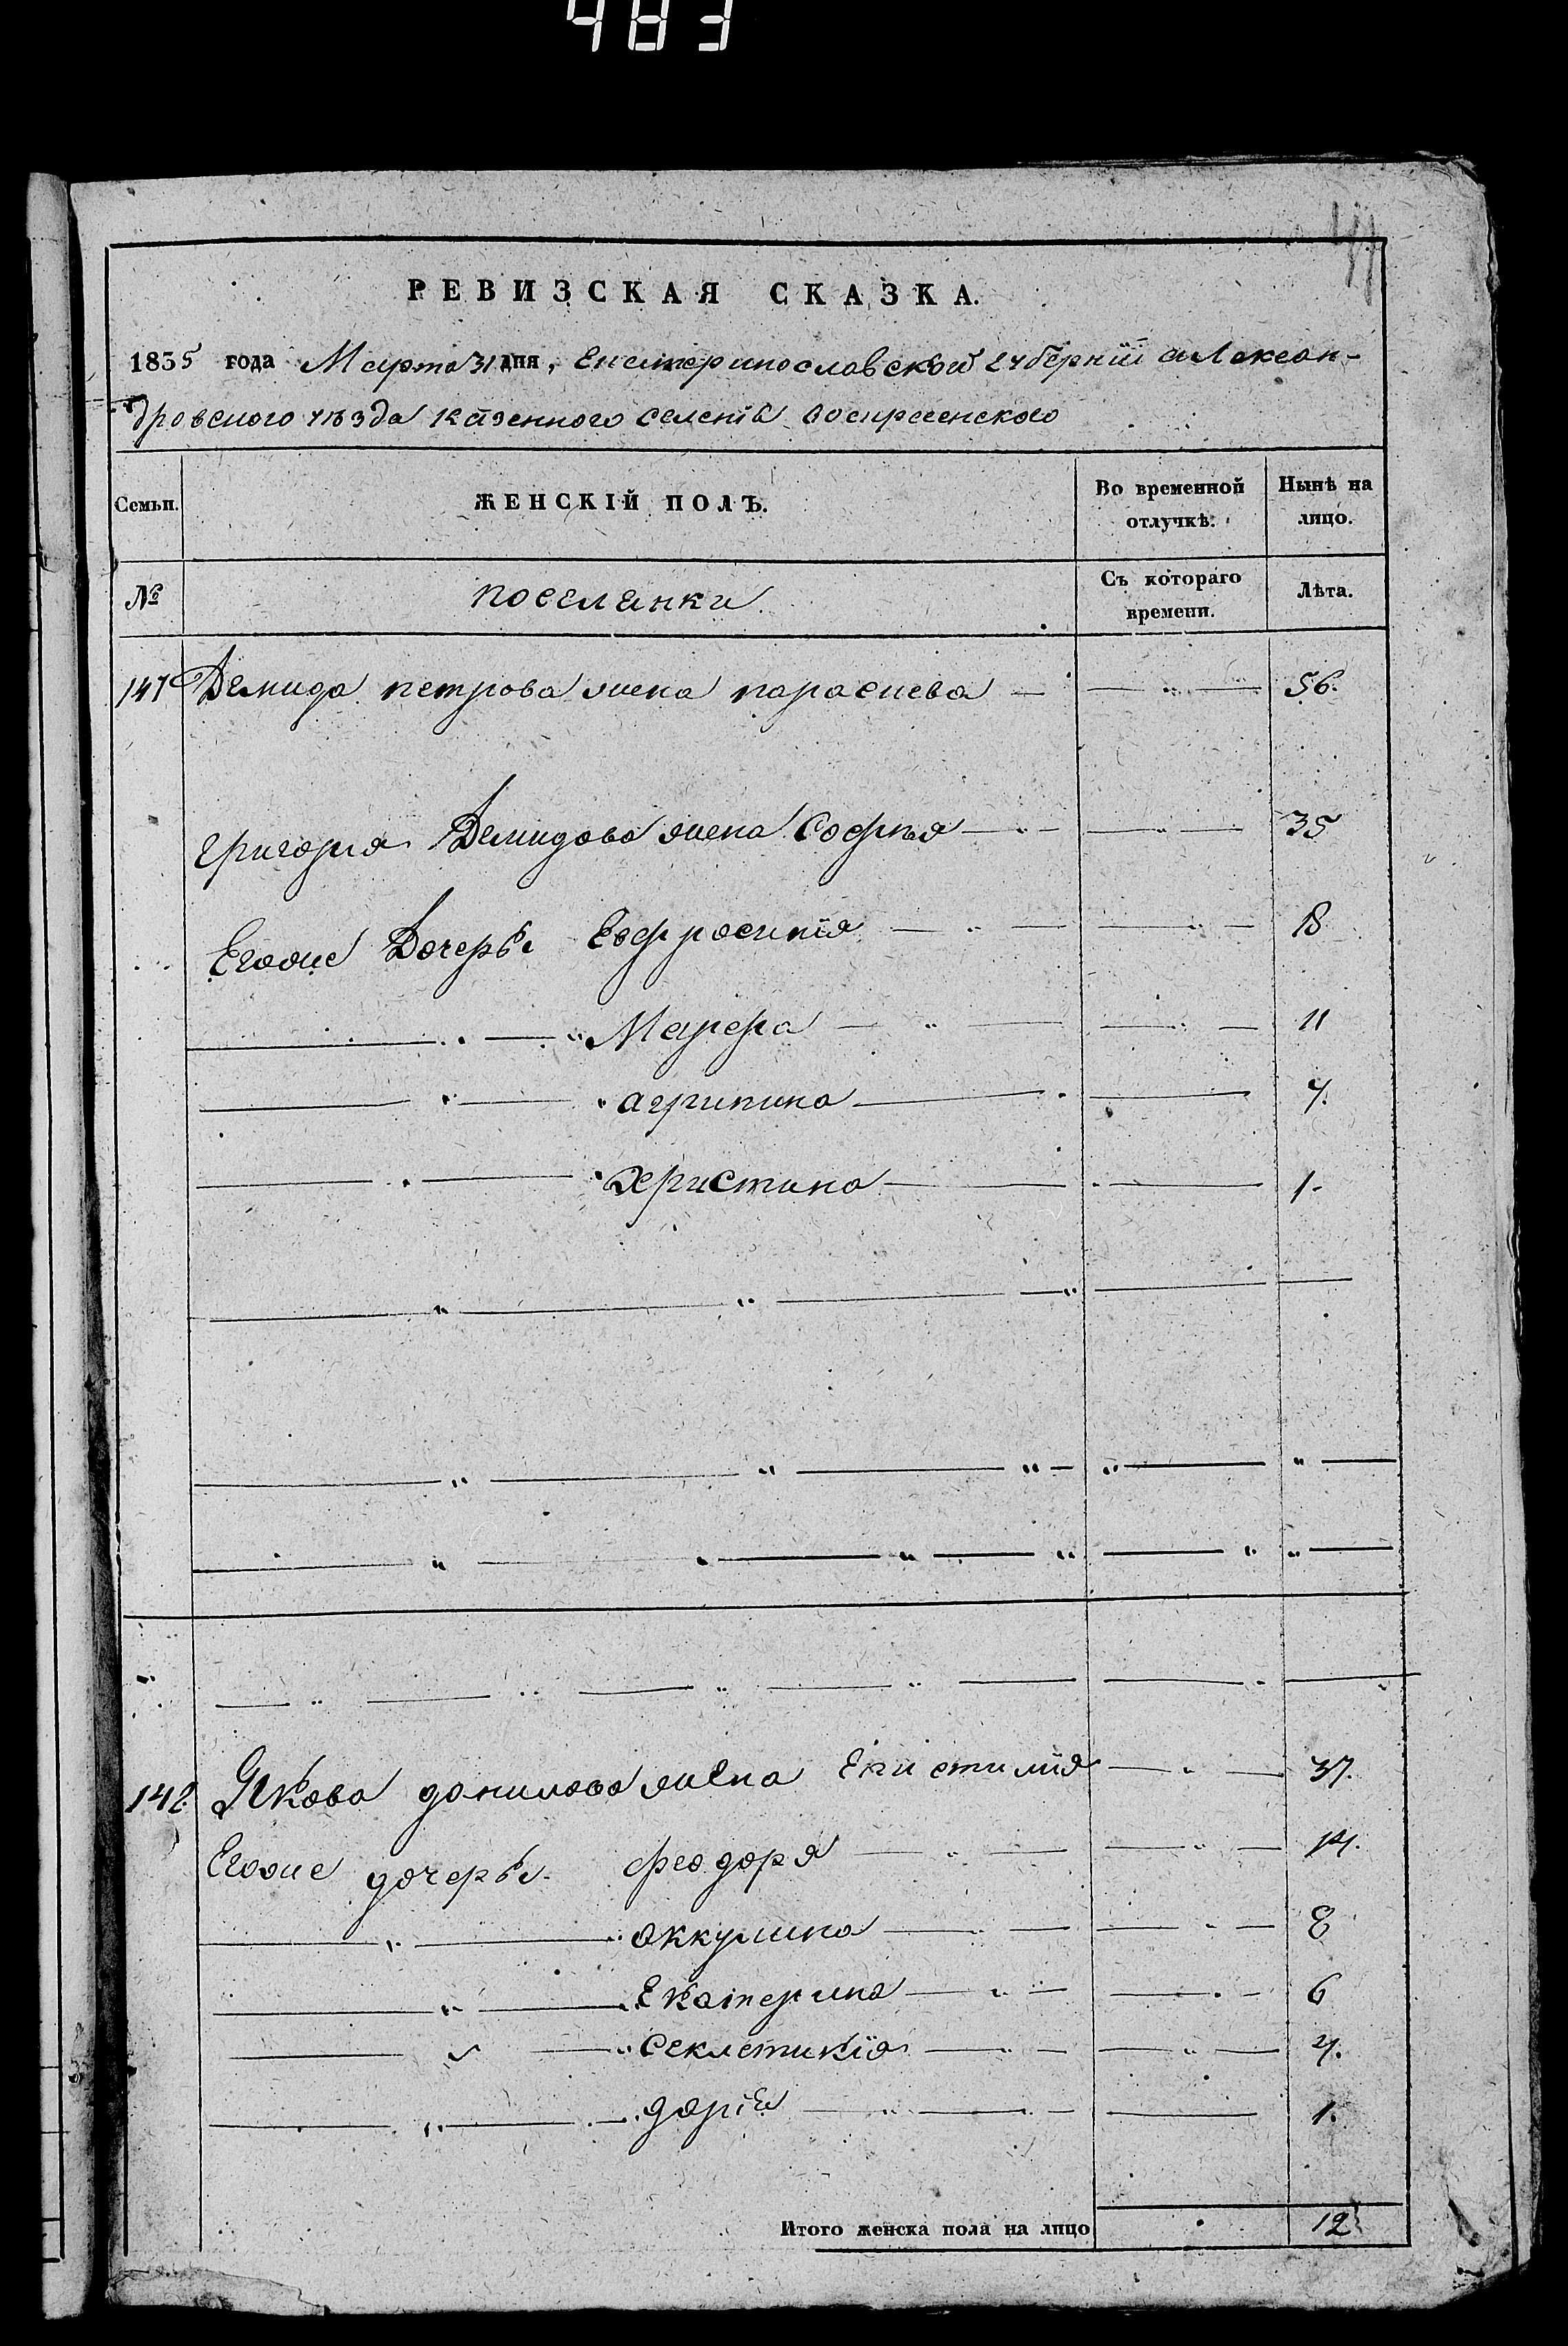 483
РЕВИЗСКАЯ СКАЗКА.
1835 года Марта 31 дня, Екатеринославской губерніи алексан-
дровского уѣзда казенного селенія воскресенского
Семьи. ЖЕНСКІЙ ПОЛЪ. Во временной отлучкѣ. Нынѣ на лицо.
№ поселянки Съ котораго времени. Лѣта.
147 Демида петрова жена параскева 56.
григория Демидова жена Софья 35
Егоже Дочери Ефросинія 18
Марфа 11
агрипина 4.
Христина 1.
148. Якова данилова жена 37.
Егоже дочери феодоря 14.
аккулина 8
Екатерина 6
Секлетикія 4.
дарія 1.
Итого женска пола на лицо 12